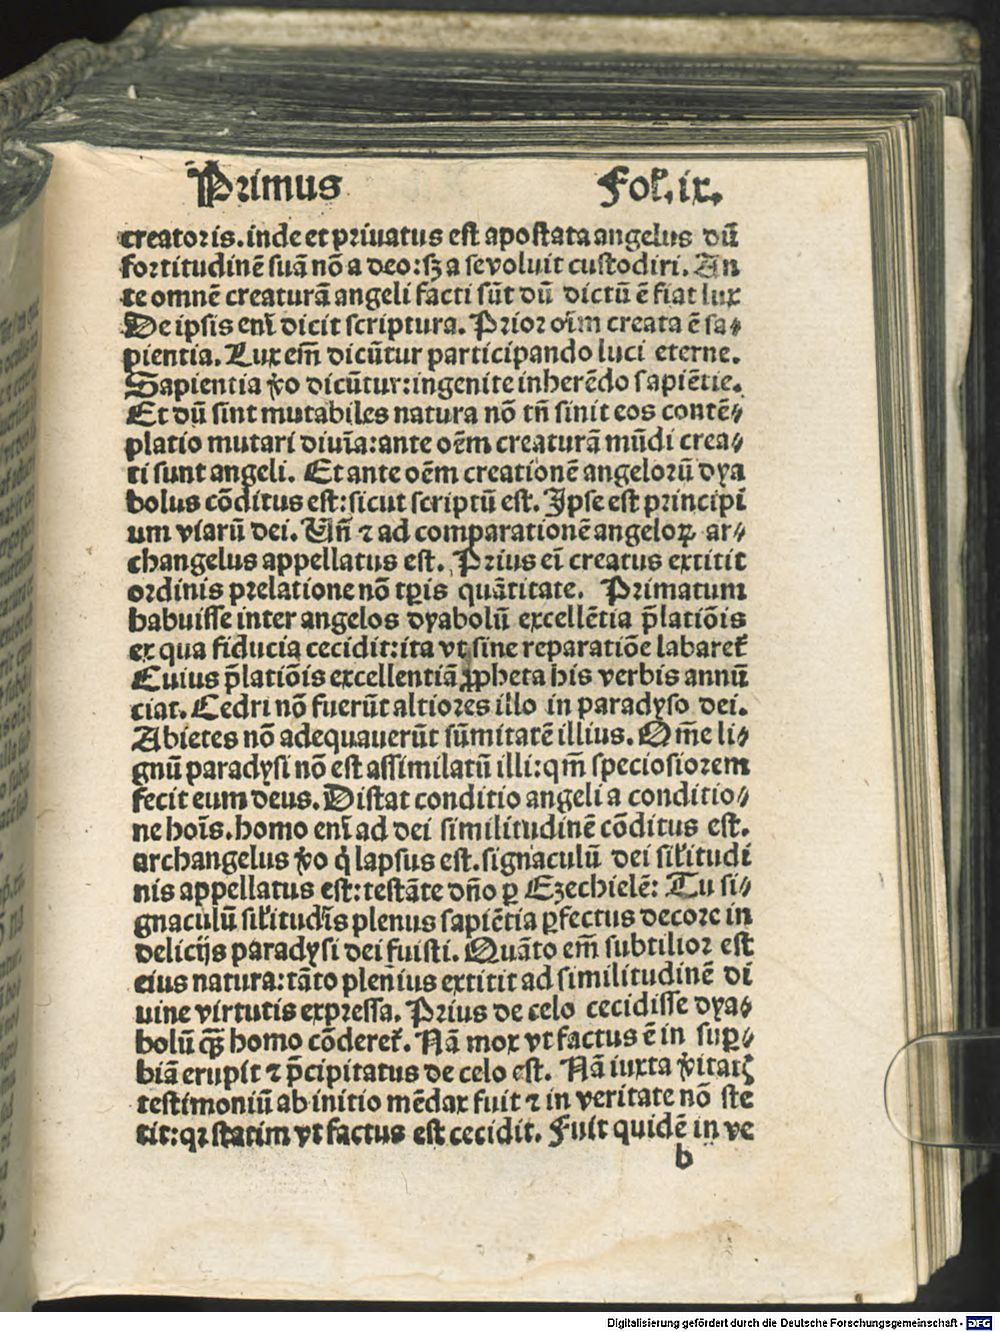 Primus Fol. ix.
creatoris. inde et priuatus est apostata angelus dū
fortitudinē suā nō a deo: sꝫ a se voluit custodiri. An
te omnē creaturā angeli facti sūt dū dictū ē fiat lux
De ipsis eni̅ dicit scriptura. Prior oi̅m creata ē sa⸗
pientia. Lux em̅ dicūtur participando luci eterne.
Sapientia ꝟo dicūtur: ingenite inherēdo sapiētie.
Et dū sint mutabiles natura nō tn̅ sinit eos contē⸗
platio mutari diui̅a: ante oēm creaturā mūdi crea⸗
ti sunt angeli. Et ante oēm creationē angelorū dya
bolus cōditus est: sicut scriptū est. Ipse est principi
um viarū dei. Vn̅ ⁊ ad comparationē angeloꝝ ar⸗
changelus appellatus est. Prius ei̅ creatus extitit
ordinis prelatione nō tꝑis quātitate. Primatum
habuisse inter angelos dyabolū excellētia p̅latiōis
ex qua fiducia cecidit: ita vt sine reparatiōe labaret᷑
Cuius p̅latiōis excellentiā ꝓpheta his verbis annū
ciat. Cedri nō fuerūt altiores illo in paradyso dei.
Abietes nō adequauerūt sūmitatē illius. Om̅e li⸗
gnū paradysi nō est assimilatū illi: qm̅ speciosiorem
fecit eum deus. Distat conditio angeli a conditio⸗
ne hoi̅s. homo eni̅ ad dei similitudinē cōditus est.
archangelus ꝟo q̇ lapsus est. signaculū dei sil̅itudi
nis appellatus est: testāte dn̅o ꝑ Ezechielē: Tu si⸗
gnaculū sil̅itudi̅s plenus sapiētia ꝑfectus decore in
delicijs paradysi dei fuisti. Quāto em̅ subtilior est
eius natura: tāto pleni̅us extitit ad similitudinē di
uine virtutis expressa. Prius de celo cecidisse dya⸗
bolū qꝫ̅ homo cōderet᷑. Nā mox vt factus ē in suꝑ⸗
biā erupit ⁊ p̅cipitatus de celo est. Nā iuxta ꝟitatꝭ
testimoniū ab initio mēdax fuit ⁊ in veritate nō ste
tit: qꝛ statim vt factus est cecidit. Fuit quidē in ve
b
Digitalisierung gefördert durch die Deutsche Forschungsgemeinschaft - DFG